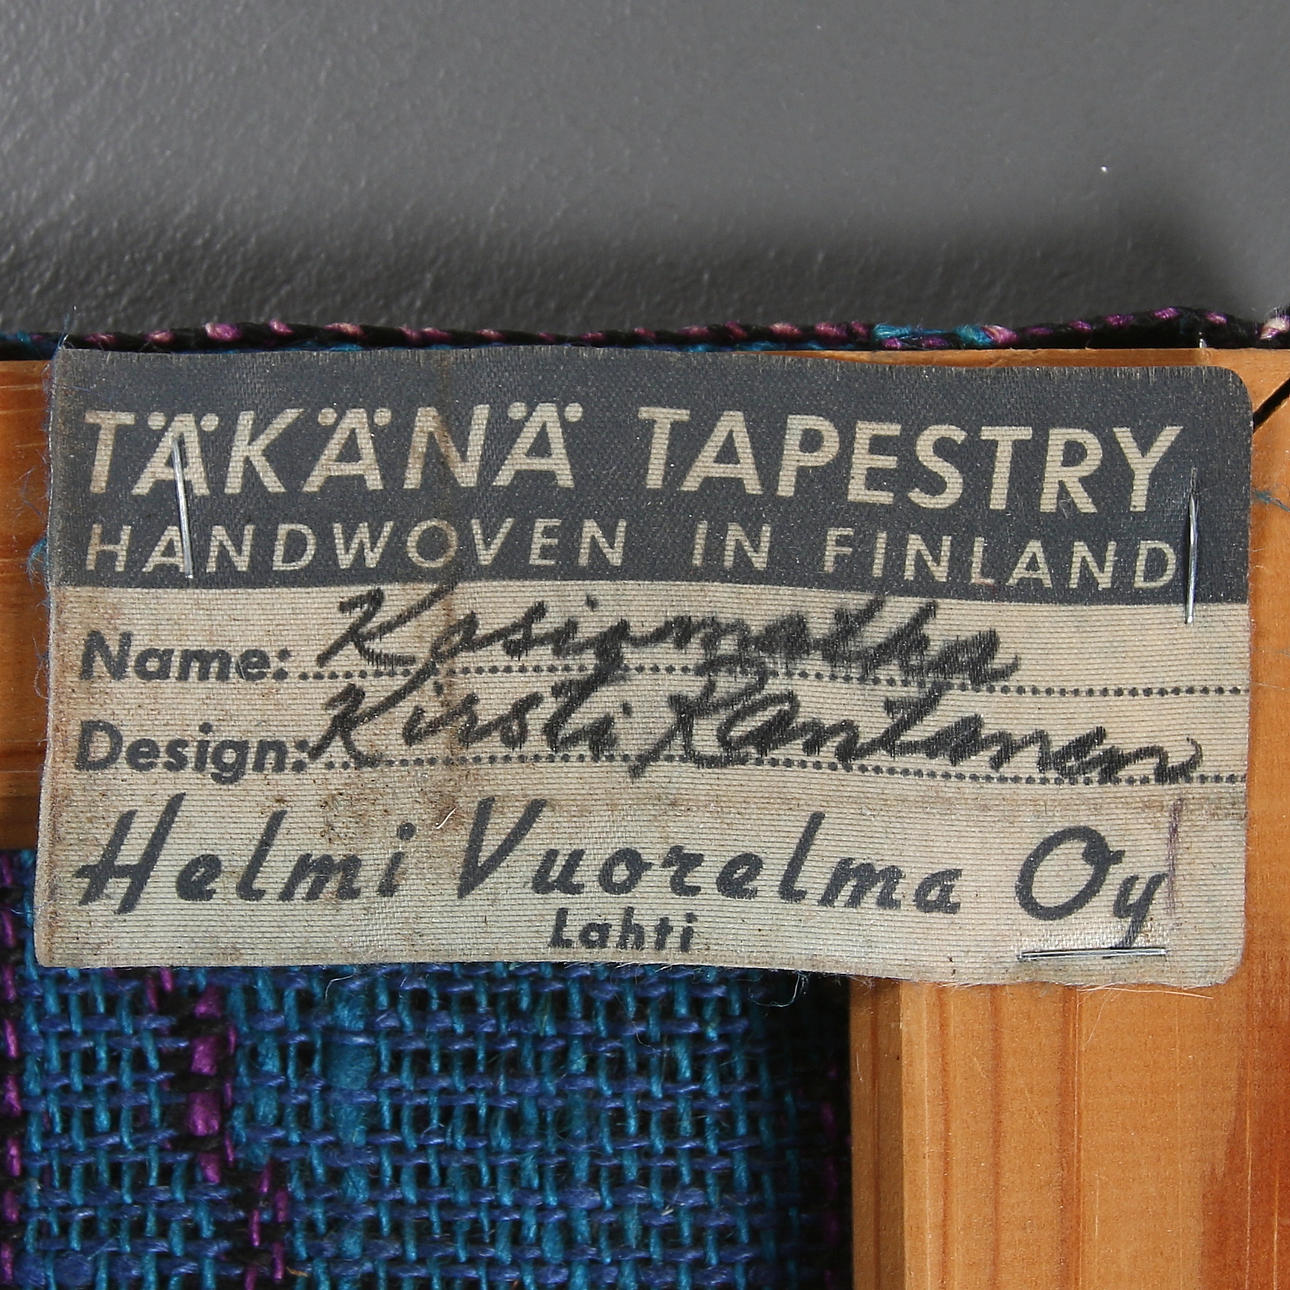 TÄKÄNÄ TAPESTRY
HANDWOVEN IN FINLAND
Name: Kosiomatka
Design: Kirsti Rantanen
Helmi Vuorelma Oy
Lahti